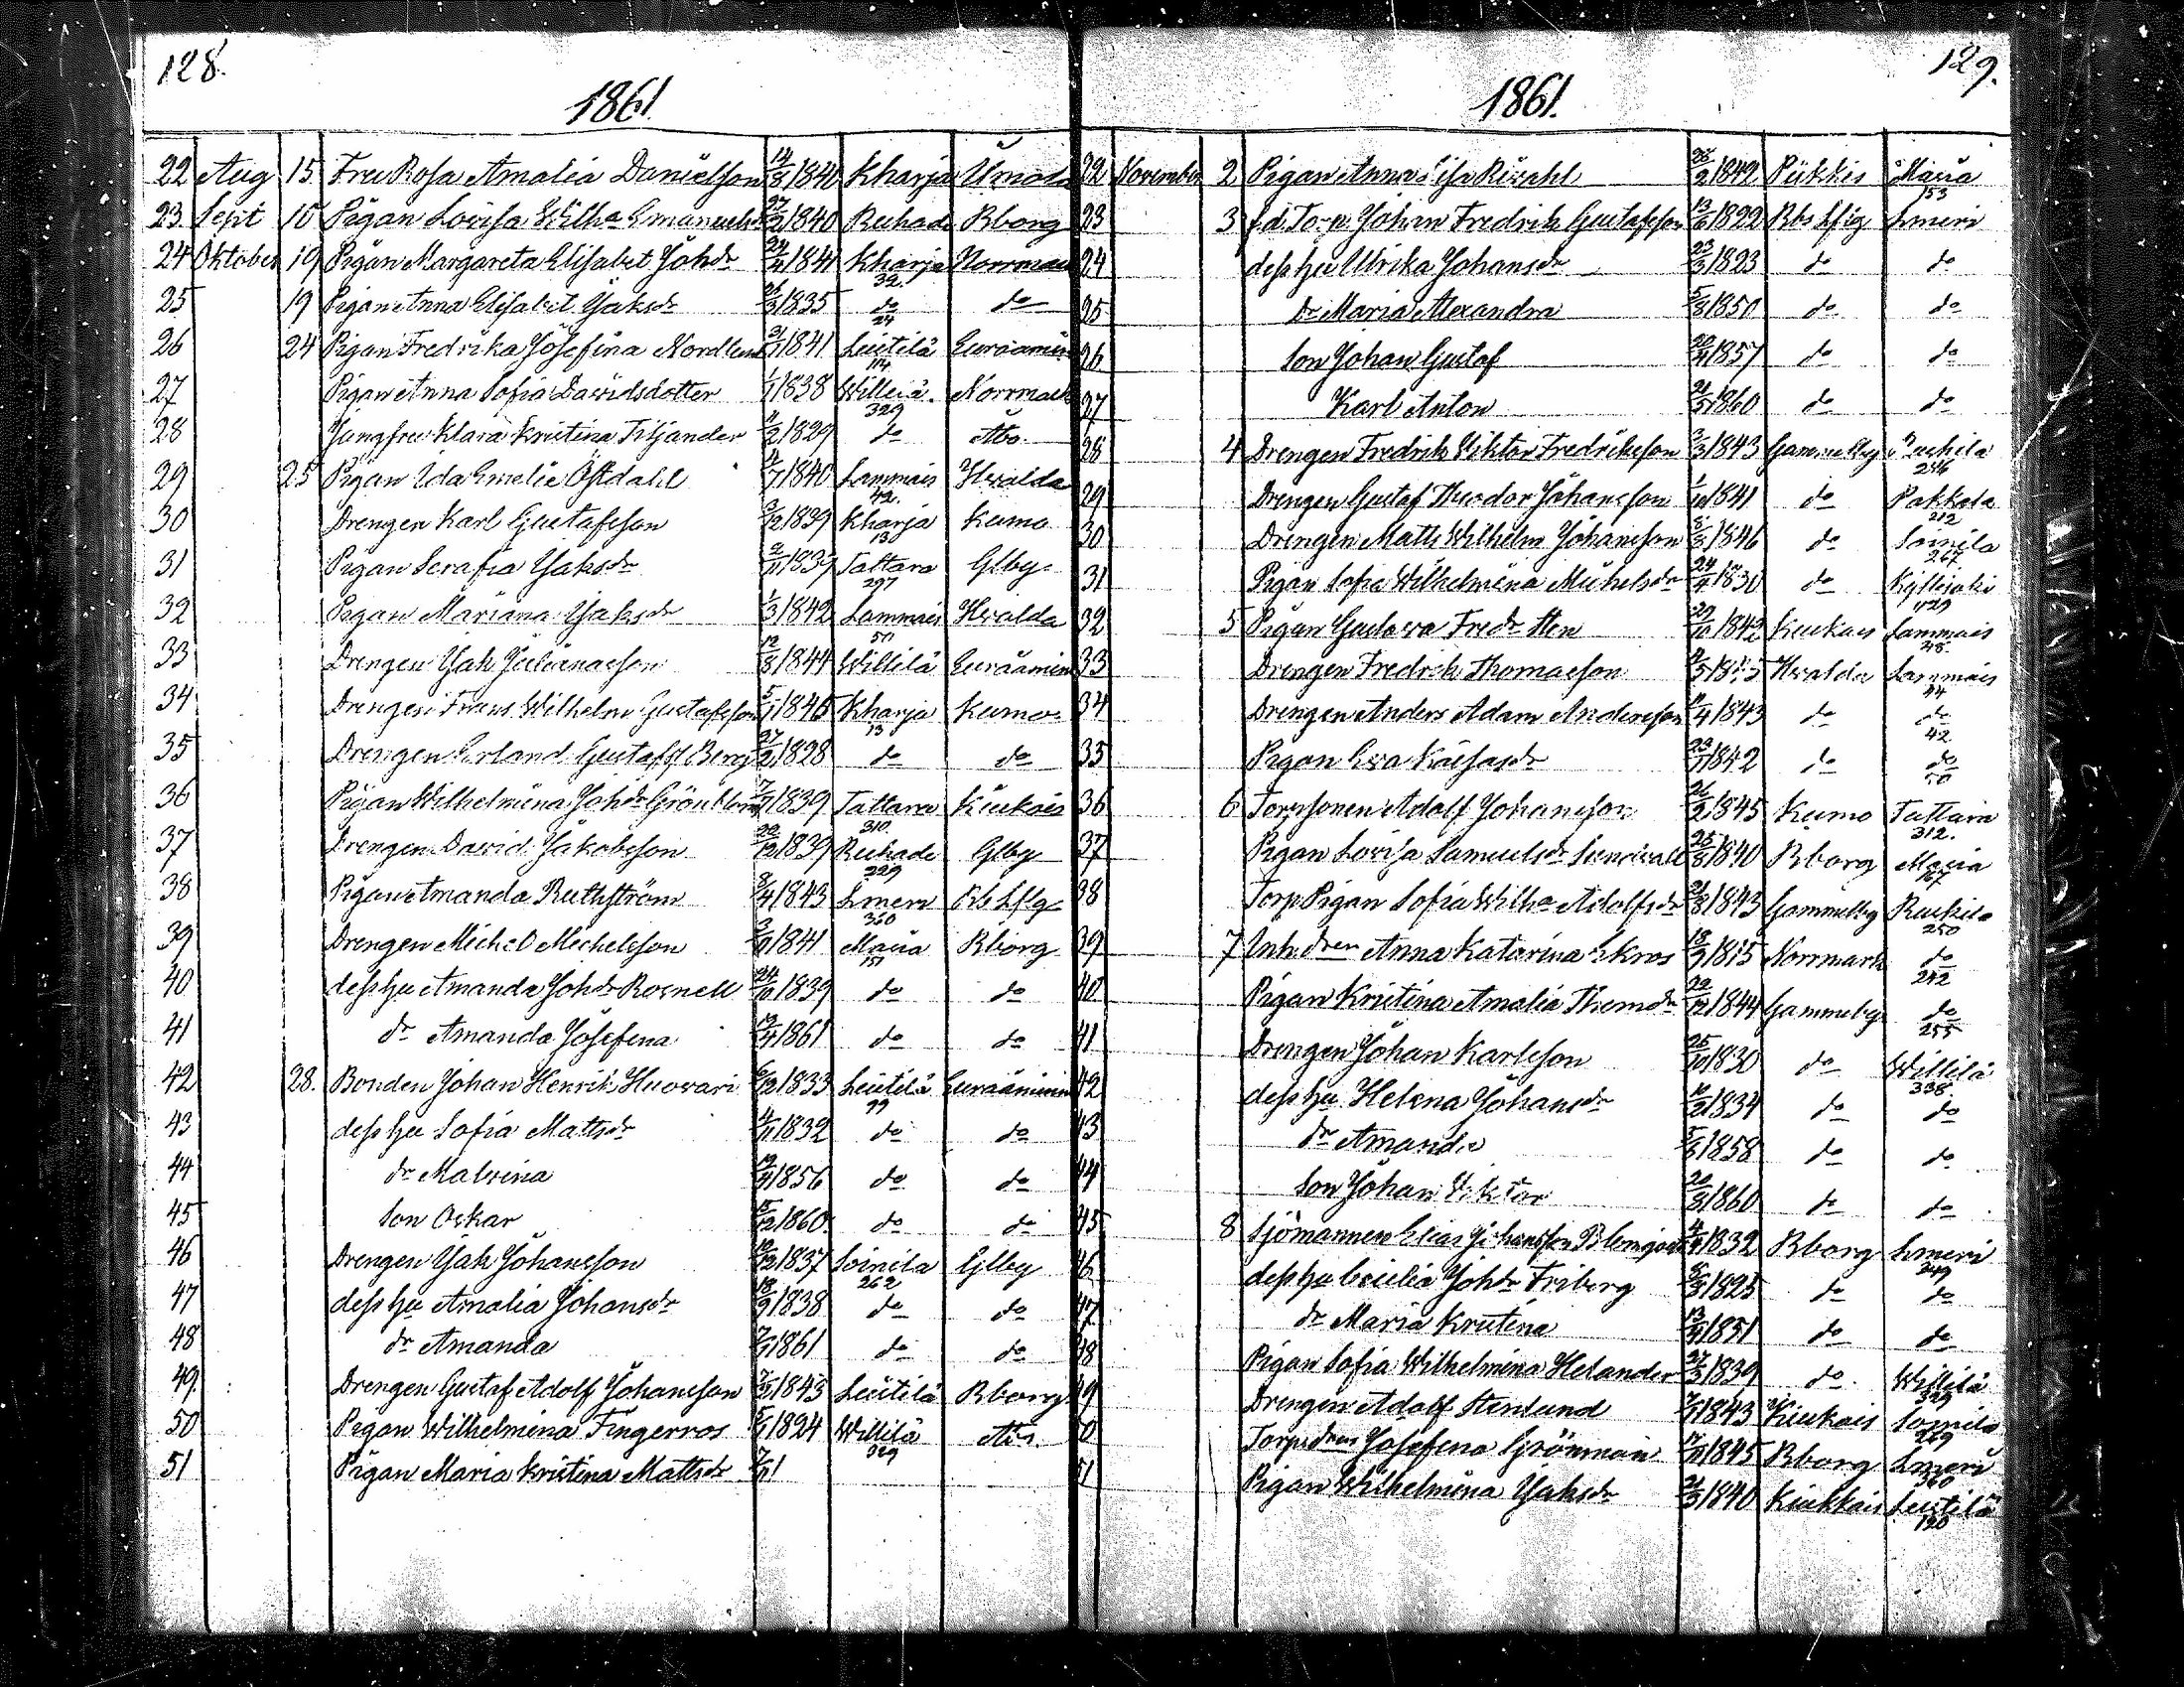 128.
1861.
22 Aug 15 Fru Rosa Amalia Danielsson 14/8 1840 Kharja Umola
23 Sept 10 Pigan Lovisa Wilha Emanuelsdr 1840 Ruhade Rborg
24 Oktober 19 Pigan Margareta Elisabet Johdr 1841 Kharja Norrmark
32.
25 19 Pigan Anna Elisabet Jaksdr 1835 do do
24
26 24 Pigan Fredrika Josefina Nordlund 1841 Leistilä Euraåminne
114
27 Pigan Anna Sofia Davidsdotter 1/1 1838 Willilä Norrmark
329
28 Jungfru Klara Kristina Titjander 1829 do Åbo
29 25 Pigan Ida Emelie Östdahl 1840 Lammais Hvalda
42.
30 Drengen Karl Gustafsson 1839 Kharja Kumo
13
31 Pigan Serafia Jaksdr 1837 Tattara Glby
297
32 Pigan Mariana Jaksdr 1/3 1842 Lammais Hvalda
50
33 Drengen Jak Julianasson 12/8 1844 Willilä Euraåminne
34 Drengen Frans Wilhelm Gustafsson 5/1 1846 Kharja Kumo
13
35 Drengen Erland Gustafss Berg 27/2 1828 do do
36 Pigan Wilhelmina Johdr Grönblom 1839 Tattara Kiukais
310.
37 Drengen David Jakobsson 20/12 1839 Ruhade Glby
229
38 Pigan Amanda Ruthström 8/4 1843 Lmeri Rbs Lflg
360
39 Drengen Michel Michelsson 1841 Maria Rborg
151
40 dess hu Amanda Johdr Rosnell 24/10 1839 do do
41 dr Amanda Josefina 1861 do do
42 28. Bonden Johan Henrik Huovari 6/12 1833 Leistilä Euraåminne
99
43 dess hu Sofia Mattsdr 4/11 1832 do do
44 dr Malvina 1856 do do
45 son Oskar 1860 do do
46 Drengen Jak Johansson 10/12 1837 Soinila Glby
262
47 dess hu Amalia Johansdr 18/9 1838 do do
48 dr Amanda 1861 do do
49. Drengen Gustaf Adolf Johansson 1843 Leistilä Rborg
50 Pigan Wilhelmina Fingerros 1824 Willilä
329
51 Pigan Maria Kristina Mattsdr 7/11
129.
1861.
22 November 2 Pigan Anna Lisa 1842 Piikkis Maria
153
23 3 f.d. Torp Johan Fredrik Gustafsson 13/6 1822 Rbs Lflg Lmeri
24 dess hu Ulrika Johansdr 23/3 1823 do do
25 Dr Maria Alexandra 5/8 1850 do do
26 Son Johan Gustaf 1857 do do
27 Karl Anton 1860 do do
28 4 Drengen Fredrik Viktor Fredriksson 1843 Gammelby Ruskila
246
29 Drengen Gustaf Theodor Johansson 1/10 1841 do Pakkala
212
30 Drengen Matts Wilhelm Johansson 1846 do Soinila
267
31 Pigan Sofia Wilhelmina Michelsdr 1830 do
32 5 Pigan Gustava Fredr Sten 1842 Kiukais Lammais
48.
33 Drengen Fredrik Thomasson Hvalda Lammais
44
34 Drengen Anders Adam Andersson 1843 do do
42
35 Pigan Eva Kaisasdr 1842 do do
50
36 6 Torpsonen Adolf Johansson 26/2 1845 Kumo Tattara
312.
37 Pigan Lovisa Samuelsdr 1840 Rborg Maria
167
38 Torp Pigan Sofia Wilha Adolfsdr 1843 Gammelby Ruskila
250
39 7 Inh dren Anna Katarina Ekros 1815 Norrmark do
242
40 Pigan Kristina Amalia Thomdr 22/12 1844 Gammelby do
255
41 Drengen Johan Karlsson 25/10 1830 do Willilä
338.
42 dess hu Helena Johansdr 10/2 1834 do do
43 dr Amanda 1858 do do
44 Son Johan Viktor 1860 do do
45 8 Sjömannen Elias Johansson 1832 Rborg Lmeri
349
46 dess hu Cecilia Johdr Friberg 1825 do do
47 dr Maria Kristina 1851 do do
48 Pigan Sofia Wilhelmina Helander 1839 do Willilä
329
49 Drengen Adolf Stenlund 1843 Kiukais Soinila
269
50 Torpdren Josefina Grönman 1845 Rborg Lmeri
360
51 Pigan Wilhelmina Jaksdr 1840 Kiukkais Leistilä
120